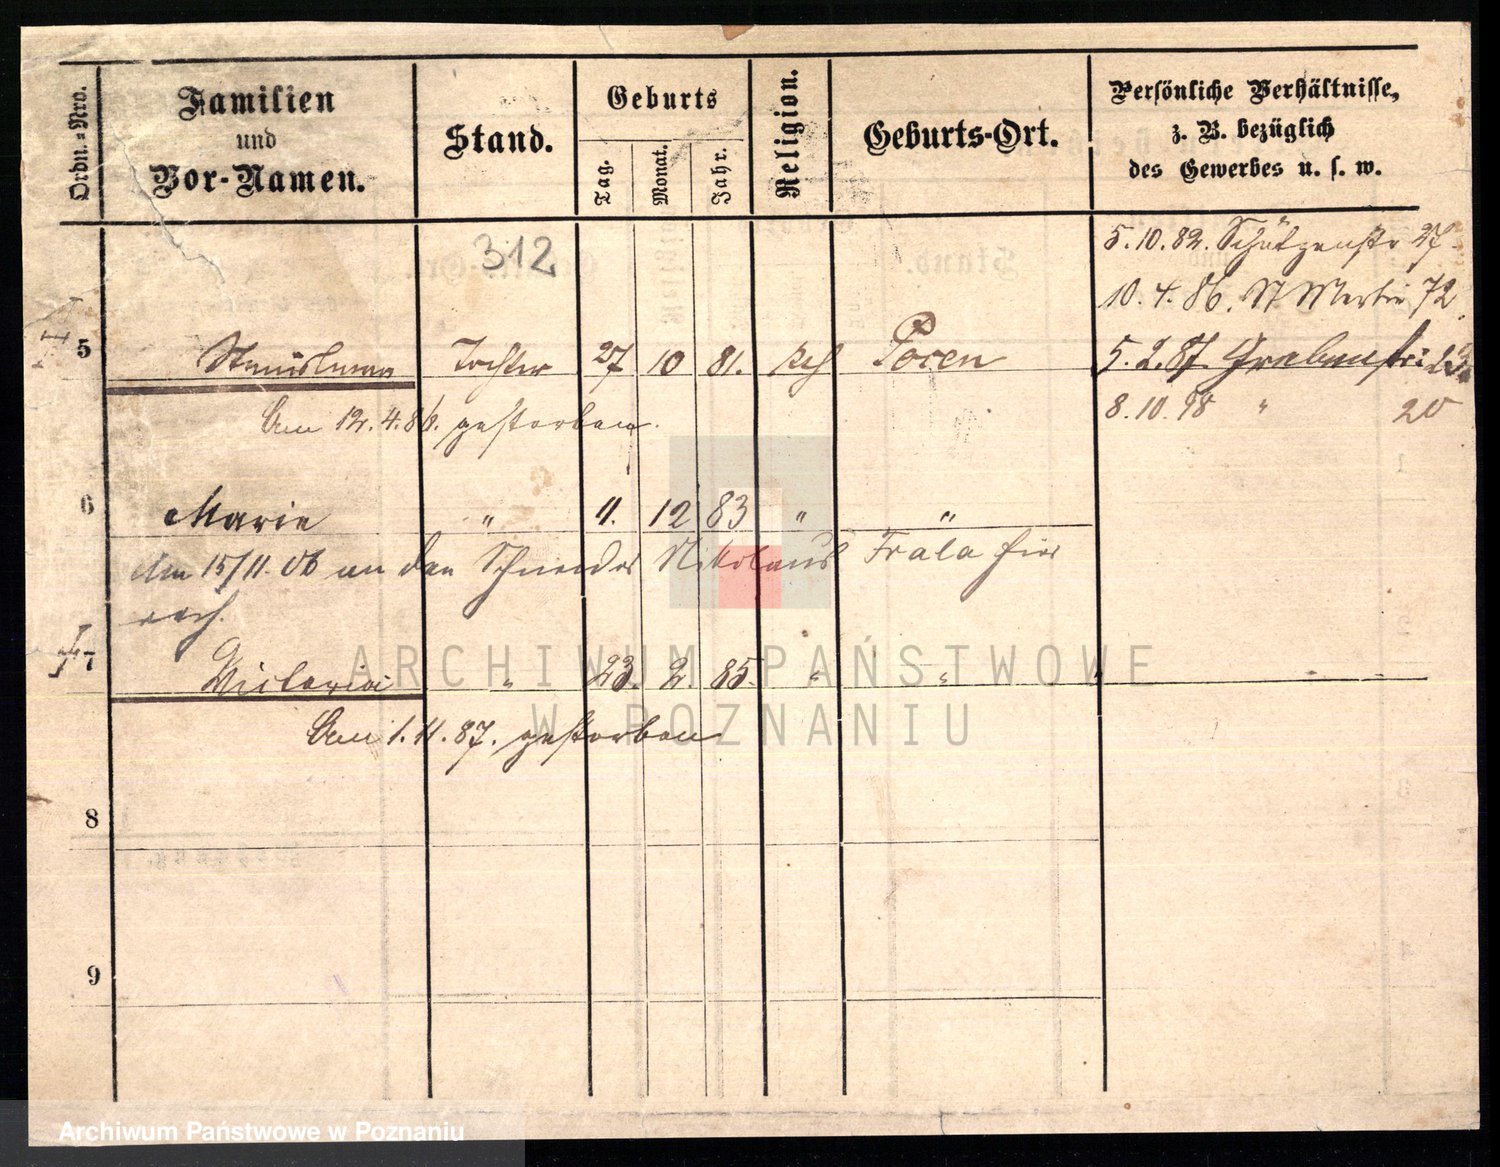 Ordn.-Nro.
Familien
und
Vor-Namen.
Stand.
Geburts
Tag.
Monat.
Jahr.
Religion.
Geburts-Ort.
Persönliche Verhältnisse,
z. B. bezüglich
des Gewerbes u. s. w.
312
5.10.82. Schützenstr 27
10.4.86. St Martin 72
5 Tochter 27 10 81. kth Posen 5.2.87. Grabenstr:
Am 12.4.86. gestorben.
8.10.98 " 20
6 Marie " 11. 12 83 " "
Am 15/11. 06 an den Schneider Nikolaus Frala hier
verh.
7 Victoria " 23. 2. 85. " " "
Am 1.11.87. gestorben
8
9
ARCHIWUM PAŃSTWOWE
W POZNANIU
Archiwum Państwowe w Poznaniu